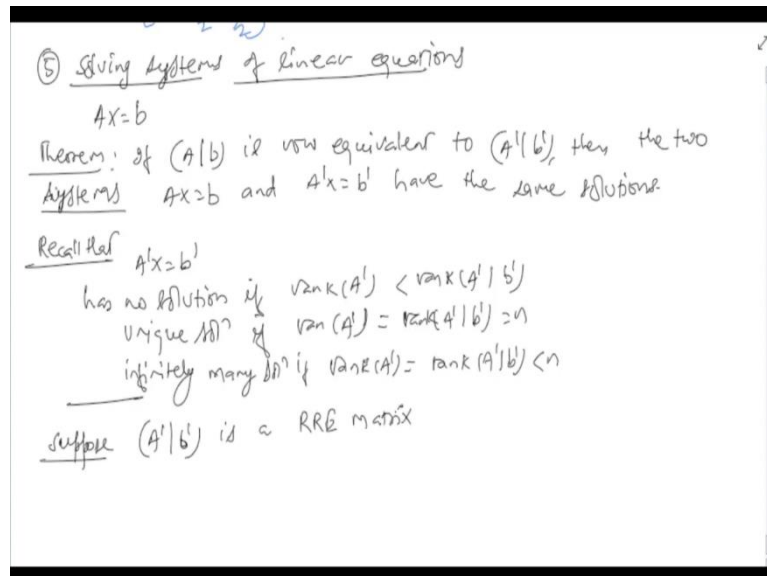 ⑤ Solving systems of linear equations
Ax=b
Theorem: If (A|b) is row equivalent to (A'|b'), then the two
systems Ax=b and A'x=b' have the same solutions.
Recall that
A'x=b'
has no solution if rank(A') < rank(A'|b')
Unique solⁿ if ran(A') = rank(A'|b')=n
infinitely many solⁿ if rank(A')= rank(A'|b')<n
Suppose (A'|b') is a RRE matrix